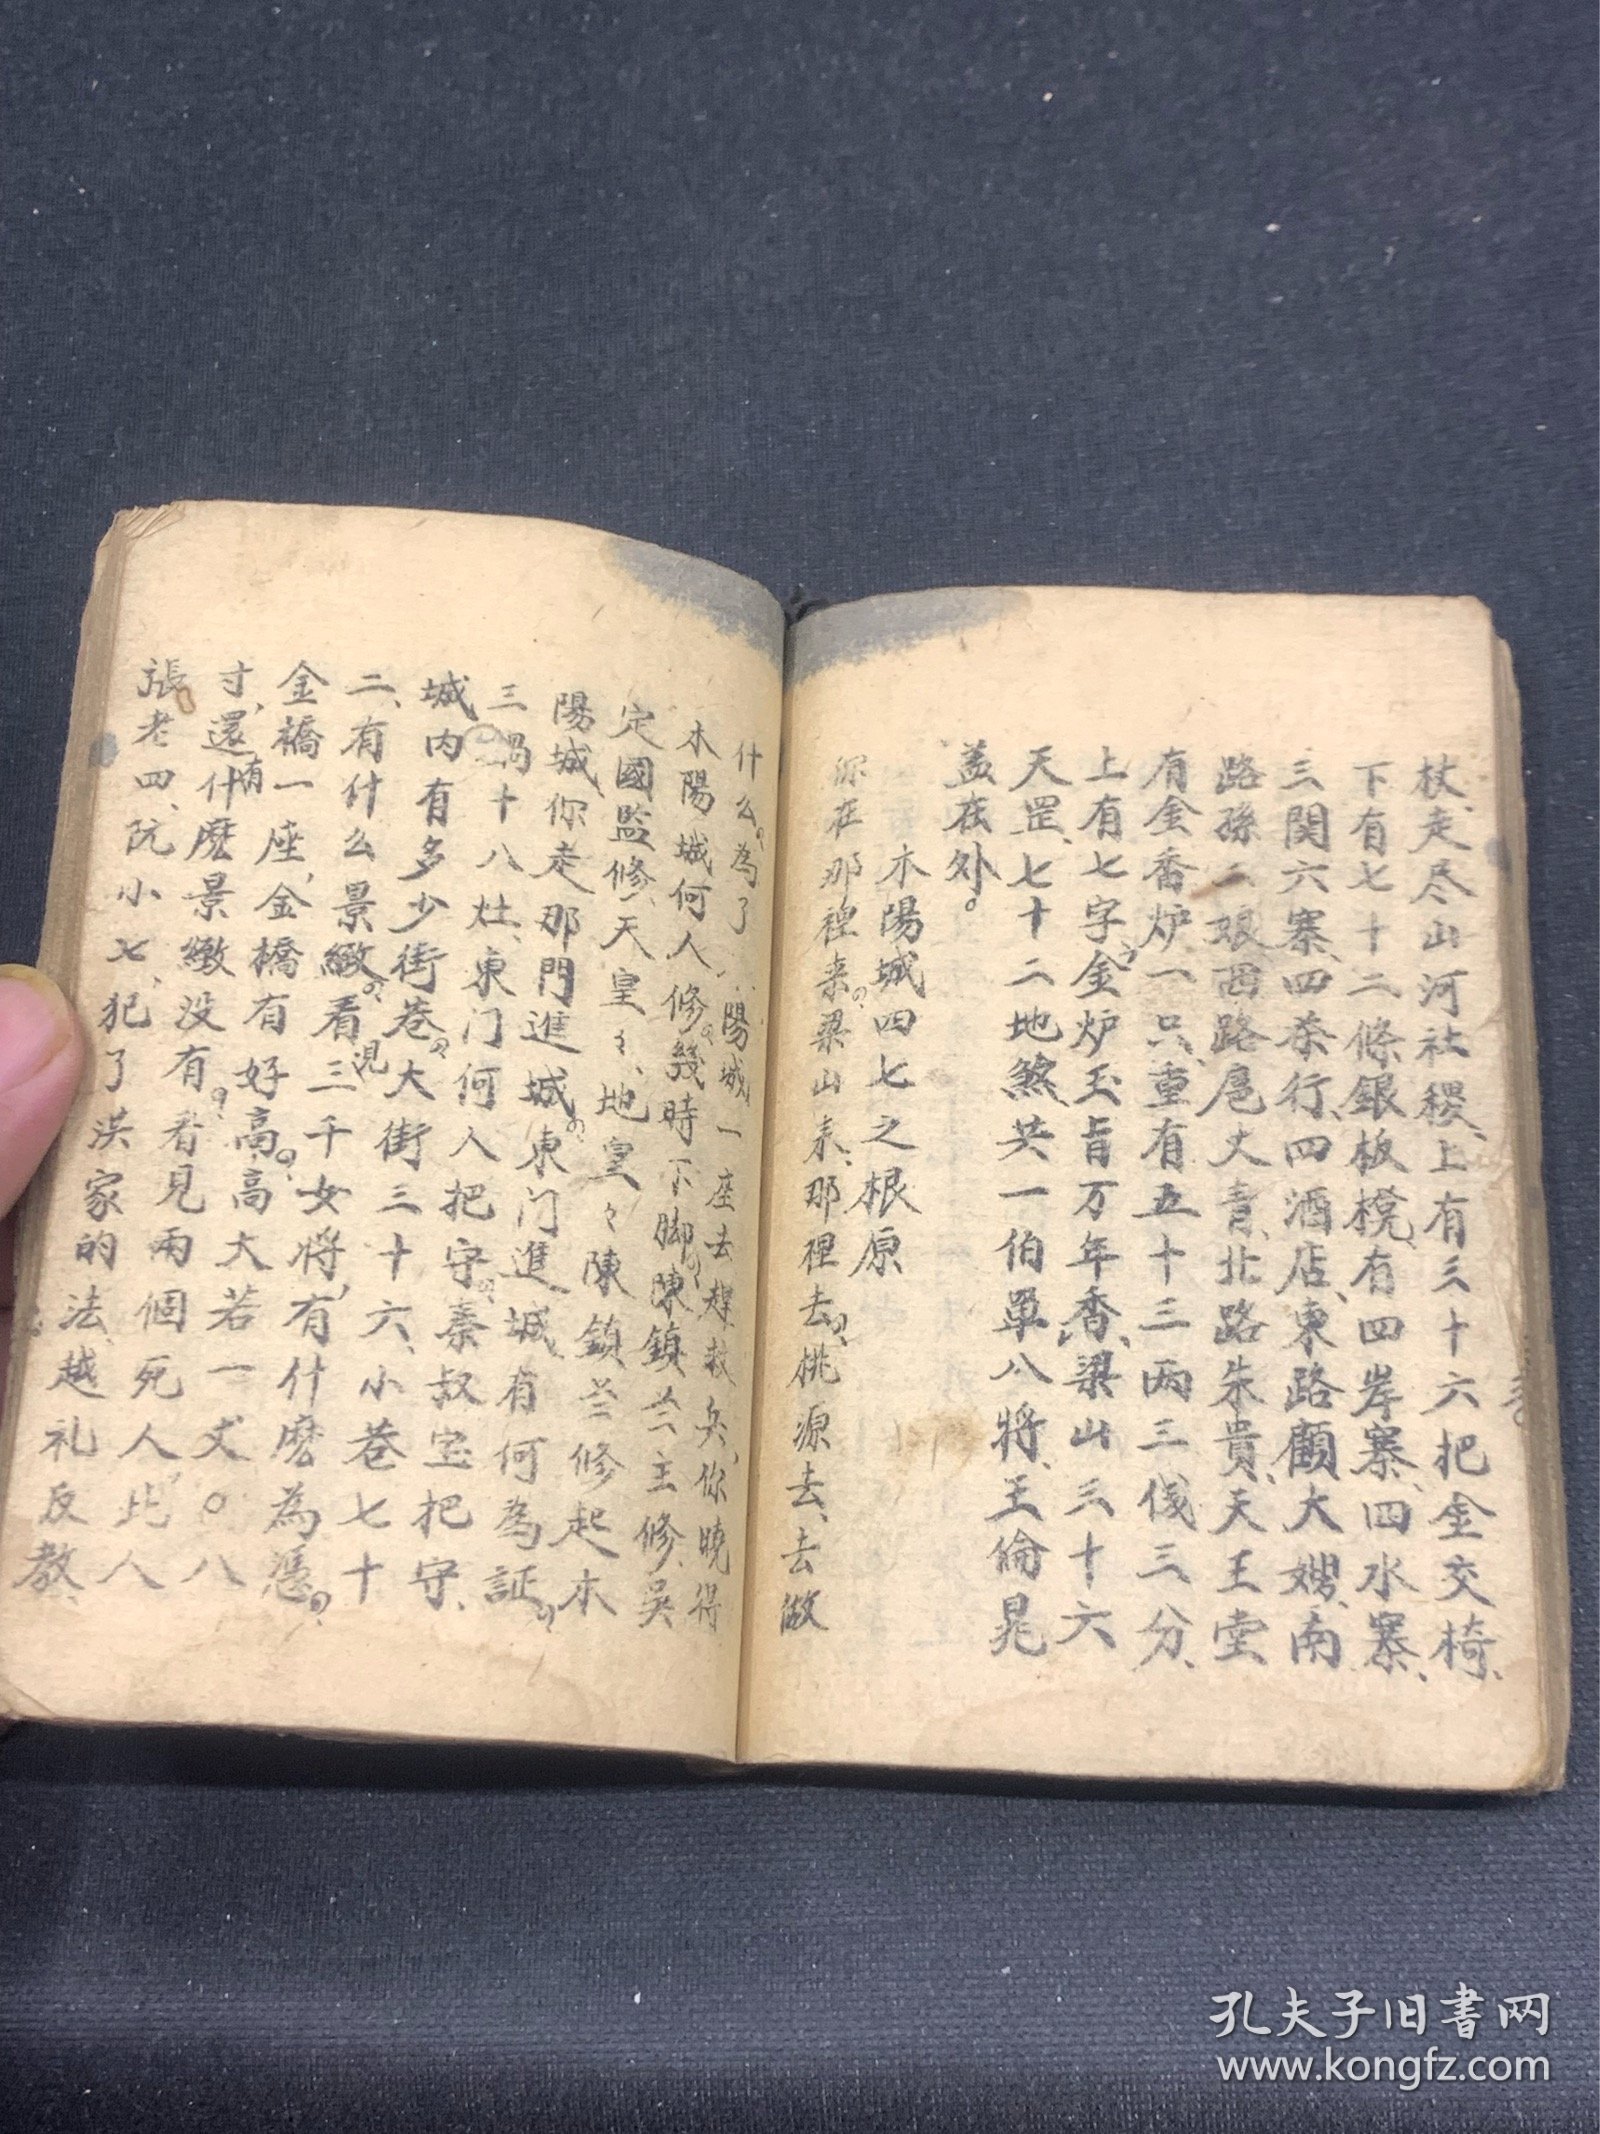 杖、走尽山河社稷、上有三十六把金交椅、
下有七十二條銀板櫈、有四岸寨、四水寨、
三関六寨、四茶行、四酒店、東路顧大嫂、南
路孫二娘、西路扈丈青、北路朱貴、天王堂
有金香炉一只、重有五十三兩三伐三分、
上有七字、金炉玉旨万年香、梁山三十六
天罡、七十二地煞、共一伯單八將、王倫晁
盖在外。
木陽城四七之根原
你在那裡来？梁山来、那裡去？桃源去、去做
什么？為了木陽城一座去趕救兵、你曉得
木陽城何人修？幾時下脚？陳鎮兰主修、吳
定國監修、天皇々、地皇々、陳鎮兰修起木
陽城、你走那門進城？東门進城、有何為証？
三鍋十八灶、東门何人把守？秦叔宝把守、
城内有多少街巷？大街三十六、小巷七十
二、有什么景緻？看見三千女將、有什麽為憑？
金橋一座、金橋有好高？高大若一丈〇八
寸、還有什麽景緻没有？看見兩個死人、此人
張老四、阮小七、犯了洪家的法、越礼反教、
孔夫子旧書网
www.kongfz.com